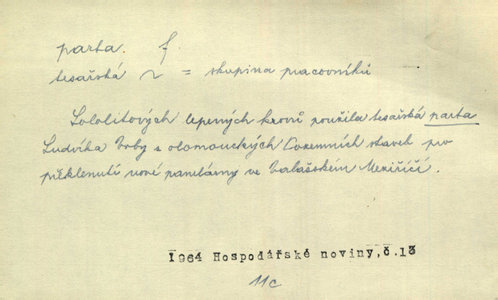 parta. f.
tesařská ~ = skupina pracovníků
Sololitových lepených krovů použila tesařská parta
Ludvíka Voby z olomouckých Pozemních staveb pro
překlenutí nové panelárny ve Valašském Meziříčí.
1964 Hospodářské noviny, č.13
11c